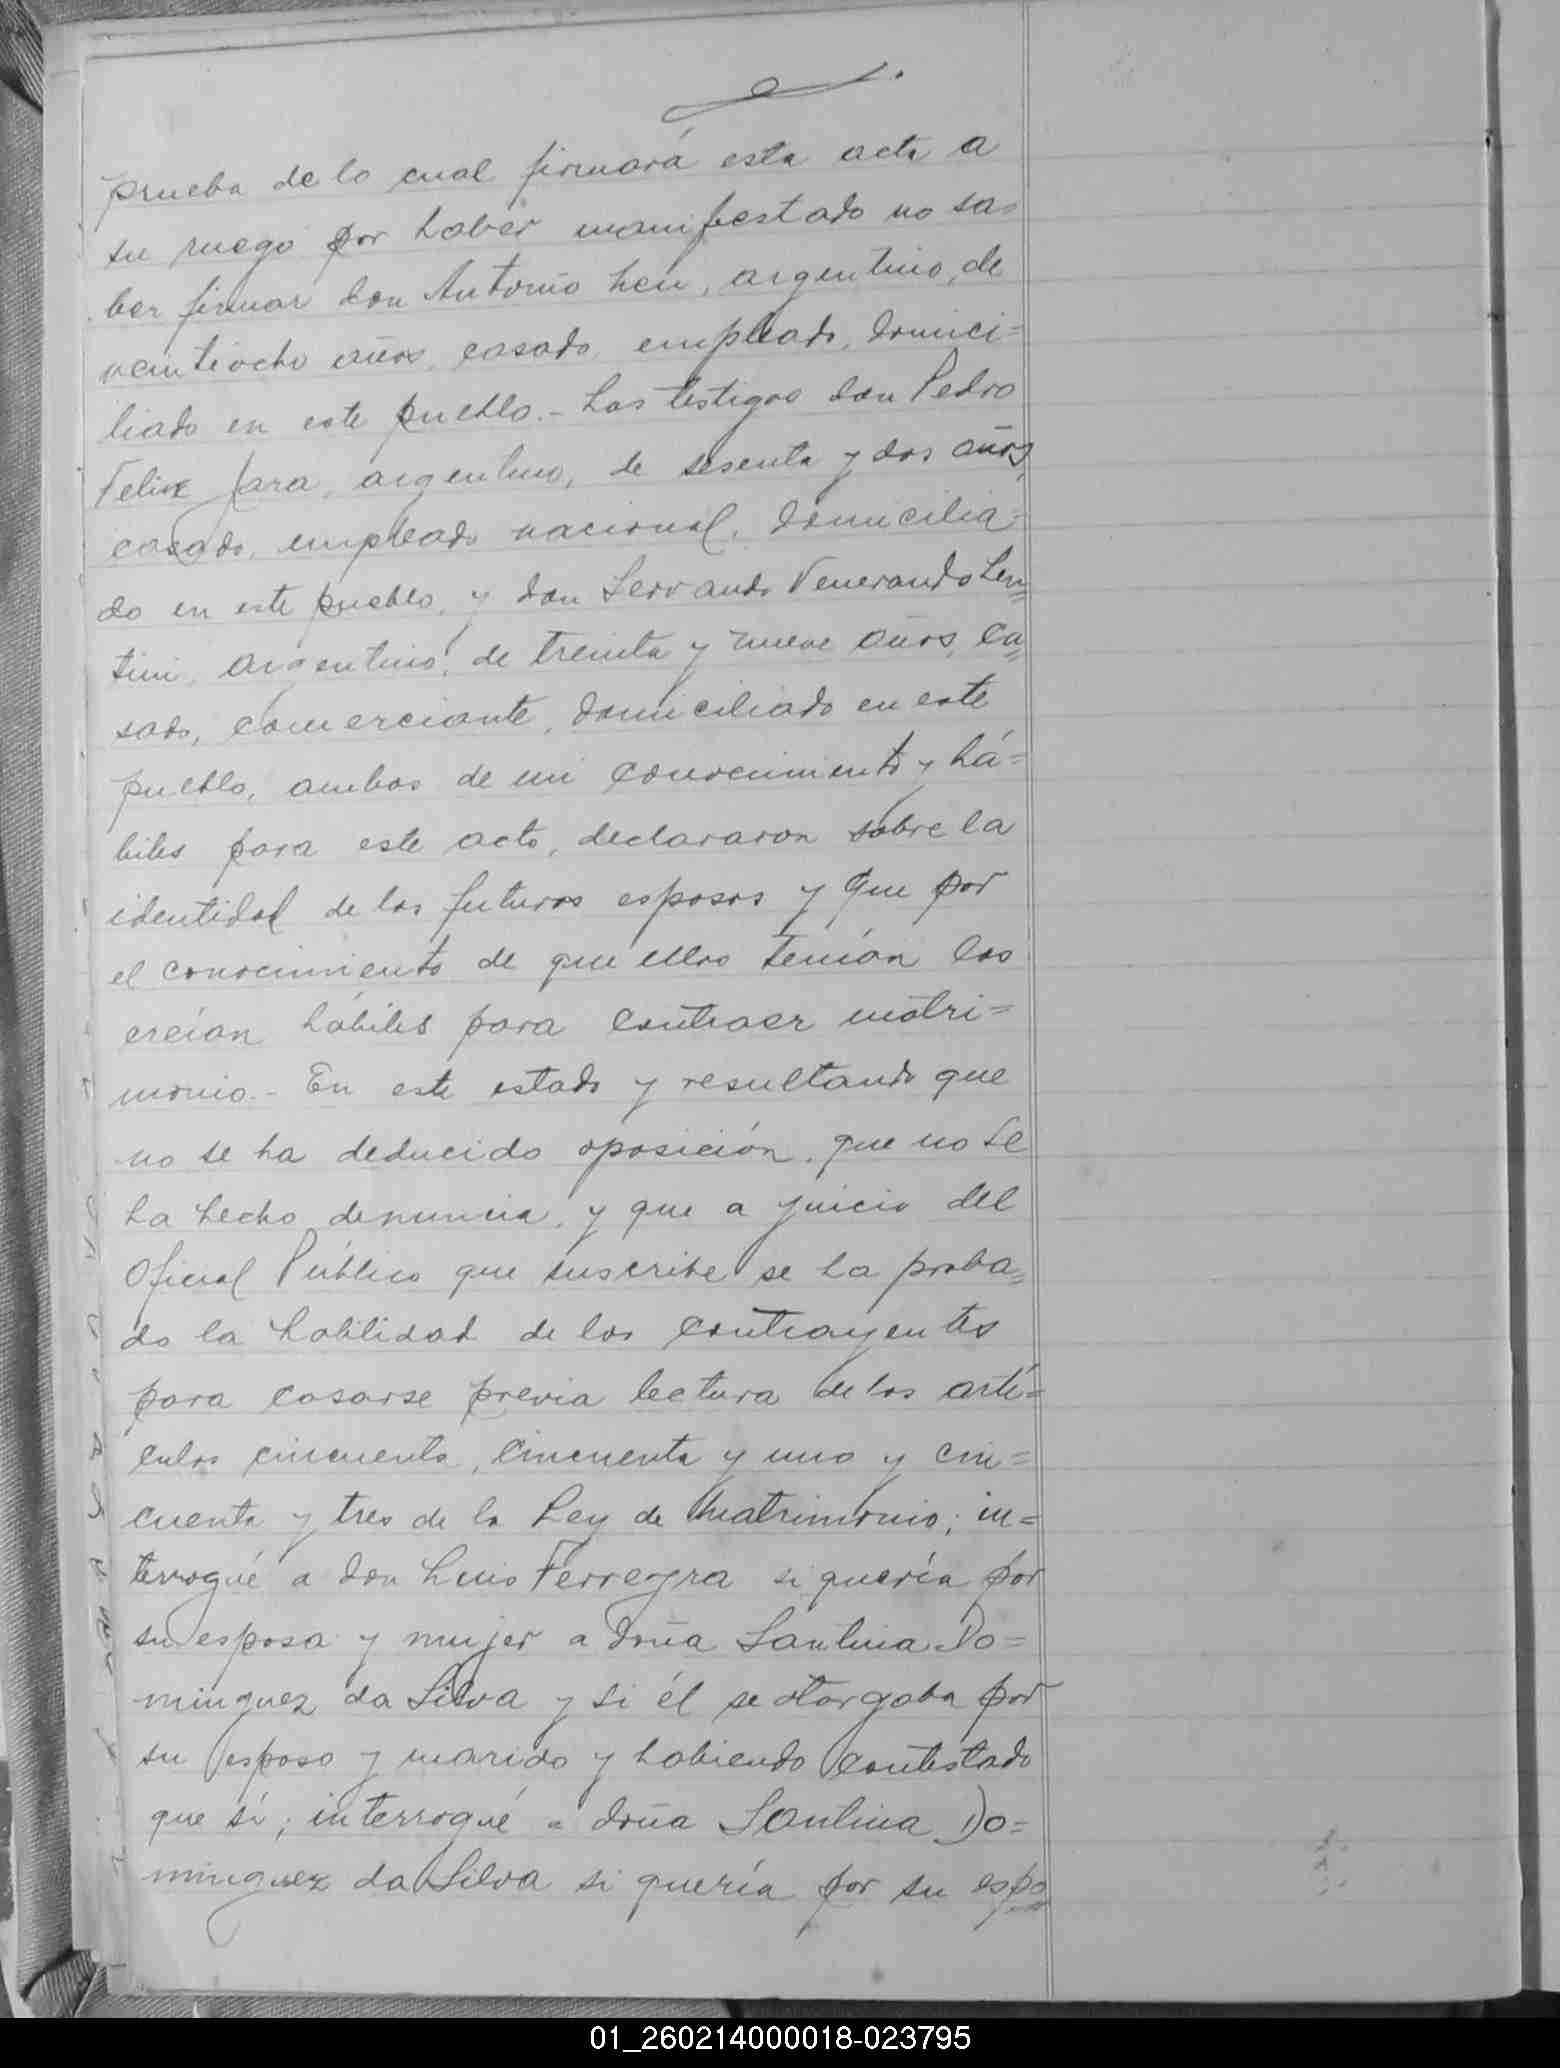 prueba de lo cual firmará esta acta a
su ruego por haber manifestado no sa=
ber firmar don Antonio, argentino, de
veintiocho años, casado, empleado, domici=
liado en este pueblo.- Los testigos don Pedro
Felix Jara, argentino, de sesenta y dos años,
casado, empleado nacional, domicilia-
do en este pueblo, y don Servando Venerando Len=
tini, argentino, de treinta y nueve años, ca=
sado, comerciante, domiciliado en este
pueblo, ambos de mi conocimiento y há=
biles para este acto, declararon sobre la
identidad de los futuros esposos y que por
el conocimiento de que ellos tenían los
creían hábiles para contraer matri=
monio.- En este estado y resultando que
no se ha deducido oposición, que no se
ha hecho denuncia, y que a juicio del
Oficial Público que suscribe se ha proba=
do la habilidad de los contrayentes
para casarse previa lectura de los artí=
culos cincuenta, cincuenta y uno y cin=
cuenta y tres de la Ley de Matrimonio; in=
terrogué a don Luis Ferreyra si quería por
su esposa y mujer a doña Santina Do=
minguez da Silva y si él se otorgaba por
su esposo y marido y habiendo contestado
que sí; interrogué a doña Santina Do=
minguez da Silva si quería por su espo=
01_260214000018-023795